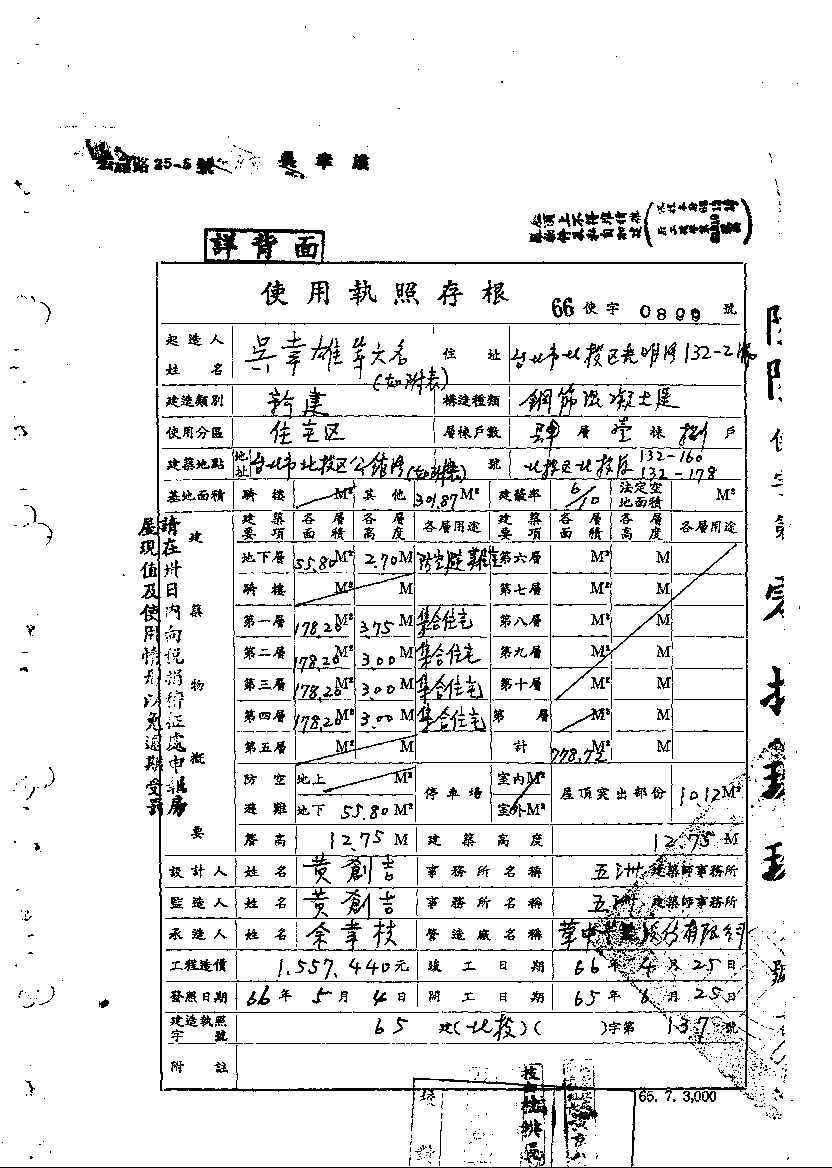 路25-5號
吳幸雄
詳背面
使用執照存根
66使字0899號
起造人姓名 吳幸雄等六名(如附表) 住址 台北市北投区光明路132-2號
建造類別 新建 構造種類 鋼筋混凝土造
使用分區 住宅区 層棟戶數 肆層壹棟捌戶
建築地點 地址 台北市北投区公館路(如附表)號 北投区北投段132-160 132-178
基地面積 騎樓 M² 其他 301.87M² 建蔽率 6/10 法定空地面積 M²
建築物概要
建築要項 各層面積 各層高度 各層用途 建築要項 各層面積 各層高度 各層用途
地下層 55.80M² 2.70M 防空避難室 第六層 M² M
騎樓 M² M 第七層 M² M
第一層 178.20M² 3.75M 集合住宅 第八層 M² M
第二層 178.20M² 3.00M 集合住宅 第九層 M² M
第三層 178.20M² 3.00M 集合住宅 第十層 M² M
第四層 178.20M² 3.00M 集合住宅 第 層 M² M
第五層 M² M 計 778.72M² M
防空避難 地上 M² 地下 55.80M² 停車場 室內M² 室外M² 屋頂突出部份 10.12M²
簷高 12.75M 建築高度 12.75M
設計人 姓名 黃創吉 事務所名稱 五洲建築師事務所
監造人 姓名 黃創吉 事務所名稱 五洲建築師事務所
承造人 姓名 余幸枝 營造廠名稱 華中 股份有限公司
工程造價 1,557,440元 竣工日期 66年4月25日
發照日期 66年5月4日 開工日期 65年6月25日
建造執照字號 65建(北投)( )字第137號
附註
請在卅日內向稅捐稽征處申報房
屋現值及使用情形以免逾期受罰
65.7.3,000